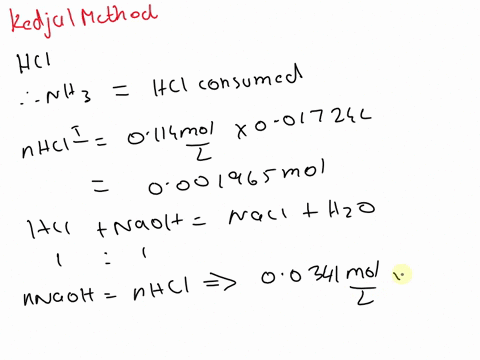 Kedjal Method
HCl
∴ NH3 = HCl consumed
nHCl I = 0.114 mol/L × 0.01724L
= 0.001965 mol
HCl + NaOH = NaCl + H2O
1 : 1
nNaOH = nHCl => 0.0341 mol/L